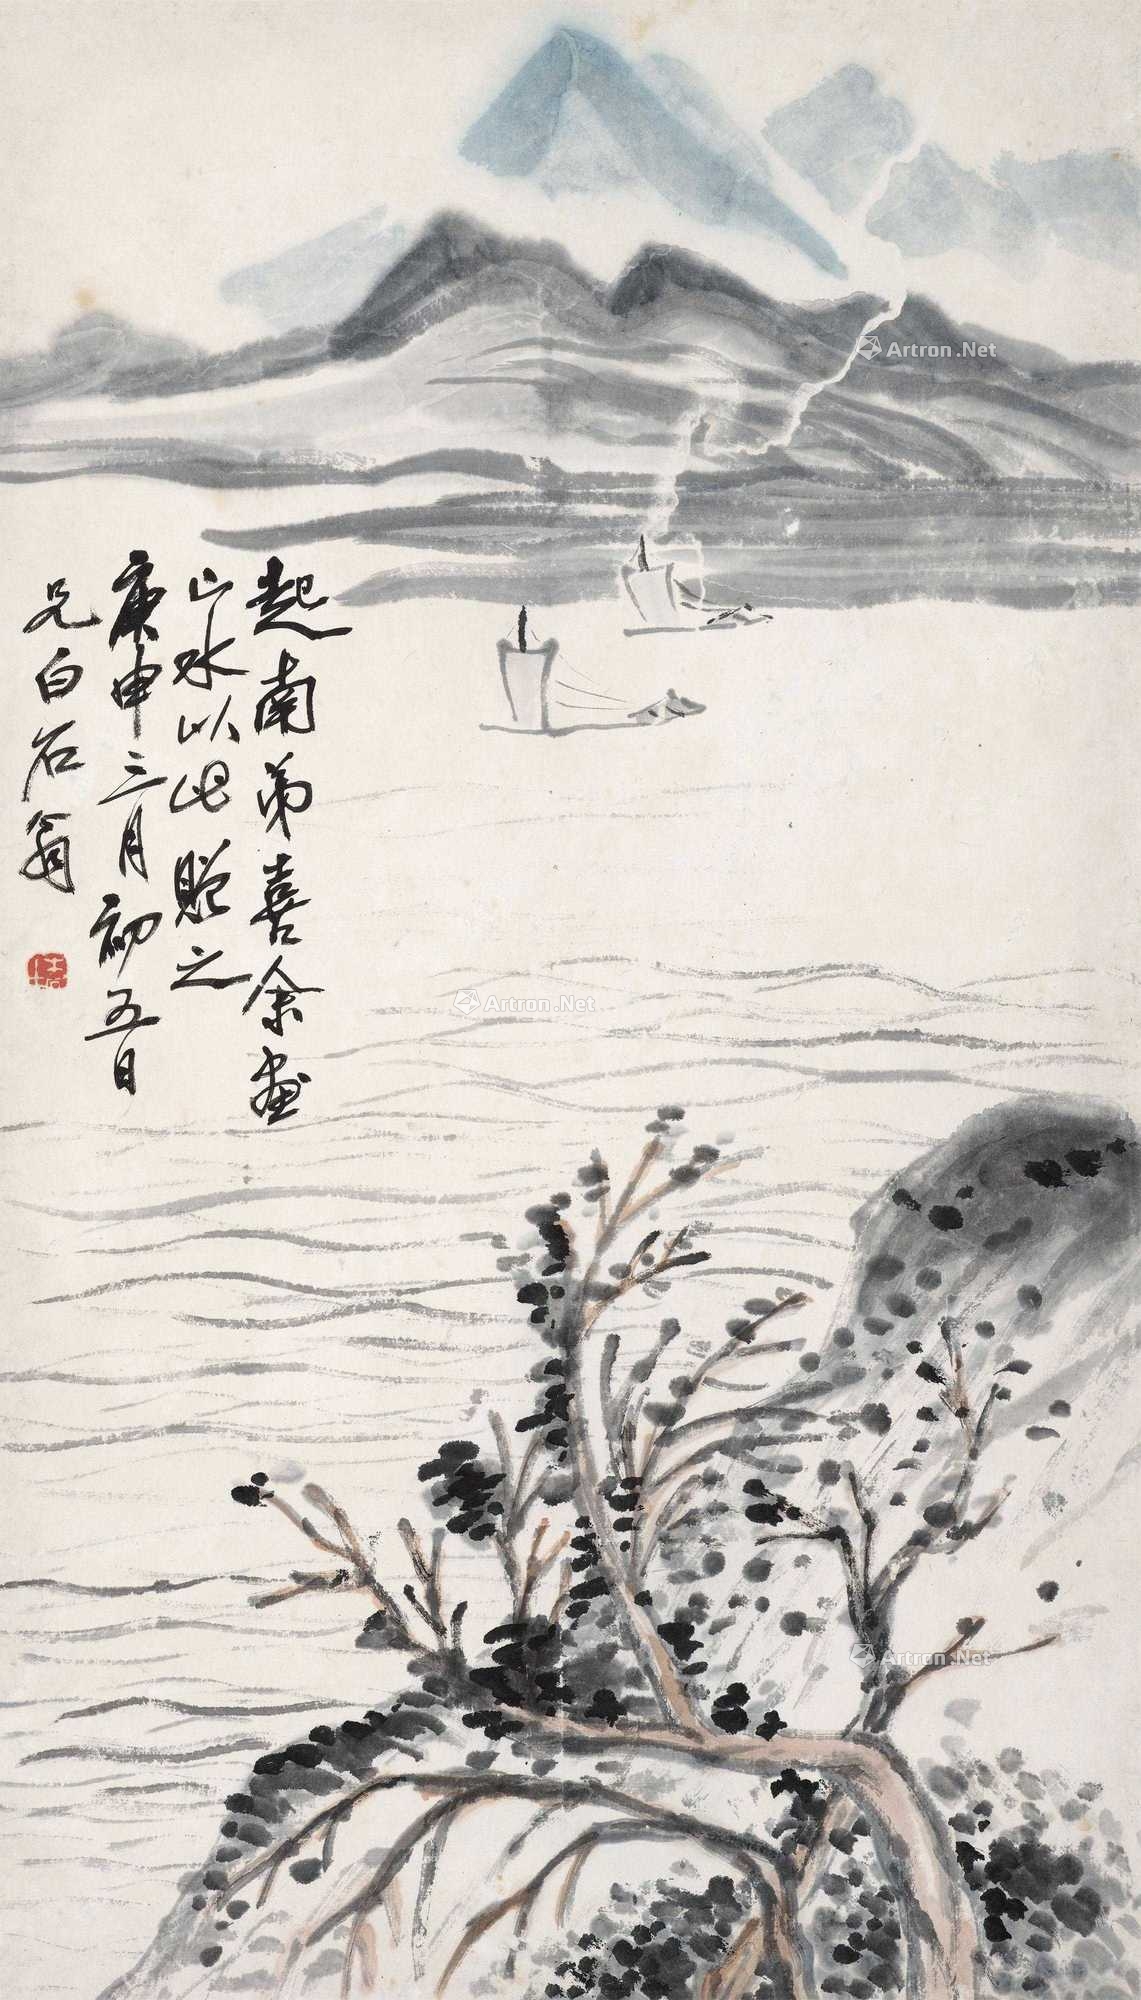 起南弟喜余画
山水以此贈之
庚申三月初五日
兄白石翁
Artron.Net
Artron.Net
Artron.Net